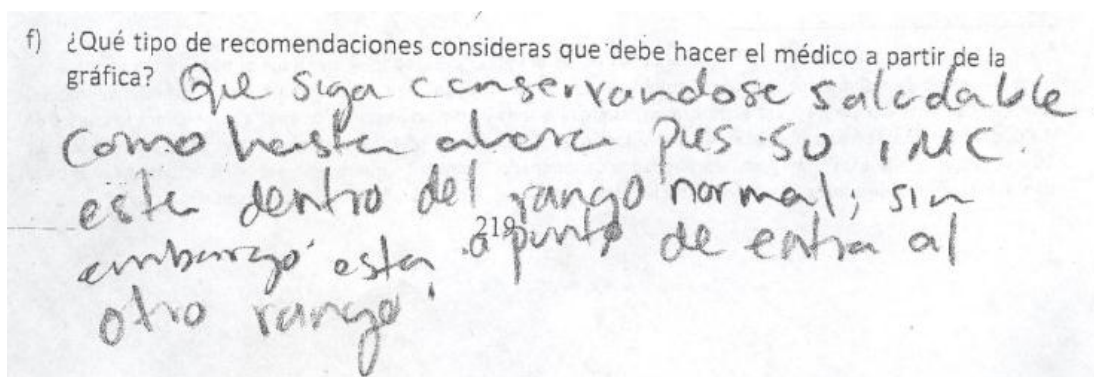 f) ¿Qué tipo de recomendaciones consideras que debe hacer el médico a partir de la
gráfica? Que siga conservandose saludable
como hasta ahora pues su IMC.
esta dentro del rango normal; sin
embargo esta a punto de entra al
219
otro rango.